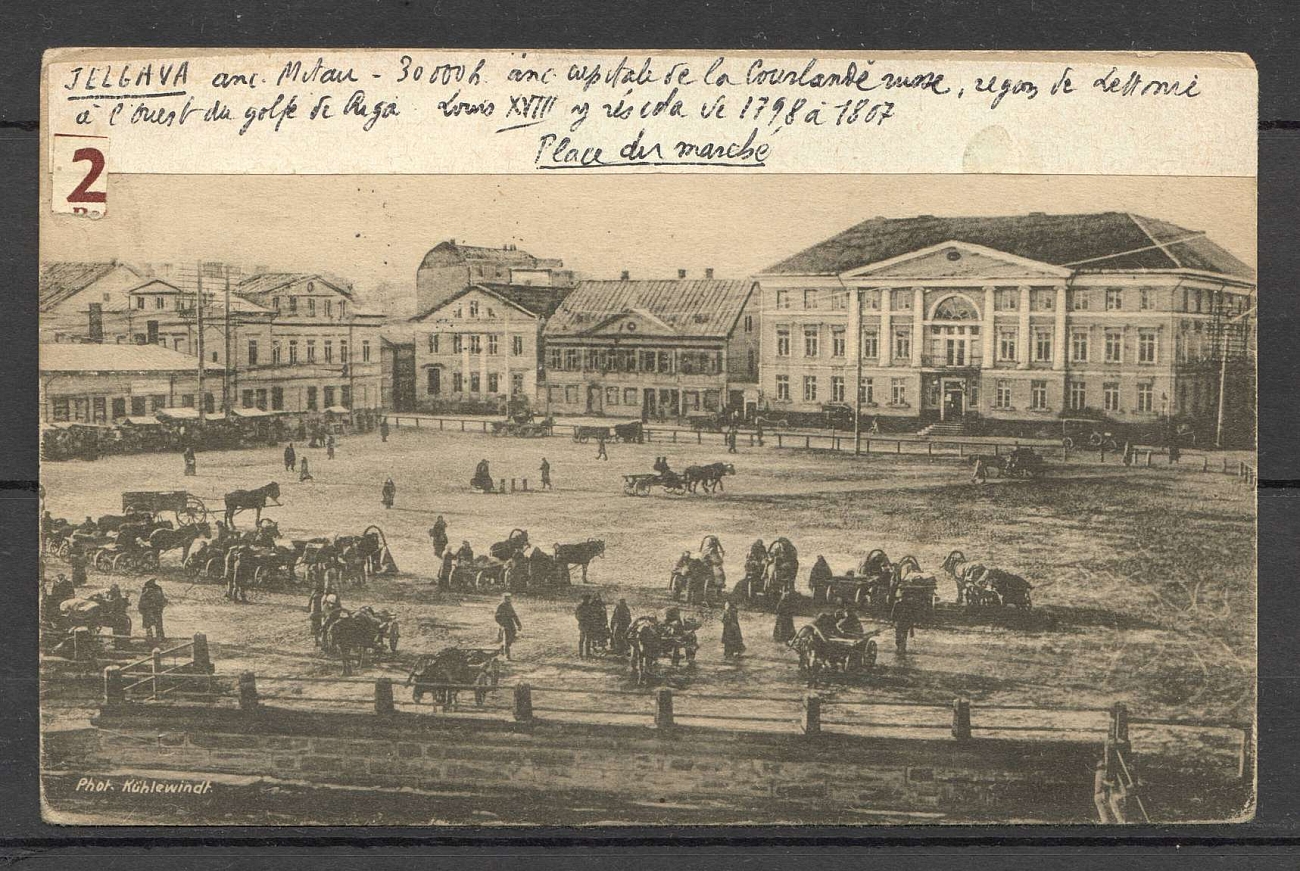 JELGAVA anc. Mitau - 30 000 h. anc. capitale de la Courlande russe, région de Lettonie
à l'ouest du golfe de Riga Louis XVIII y résida de 1798 à 1807
Place du marché
2
Phot. Kühlewindt